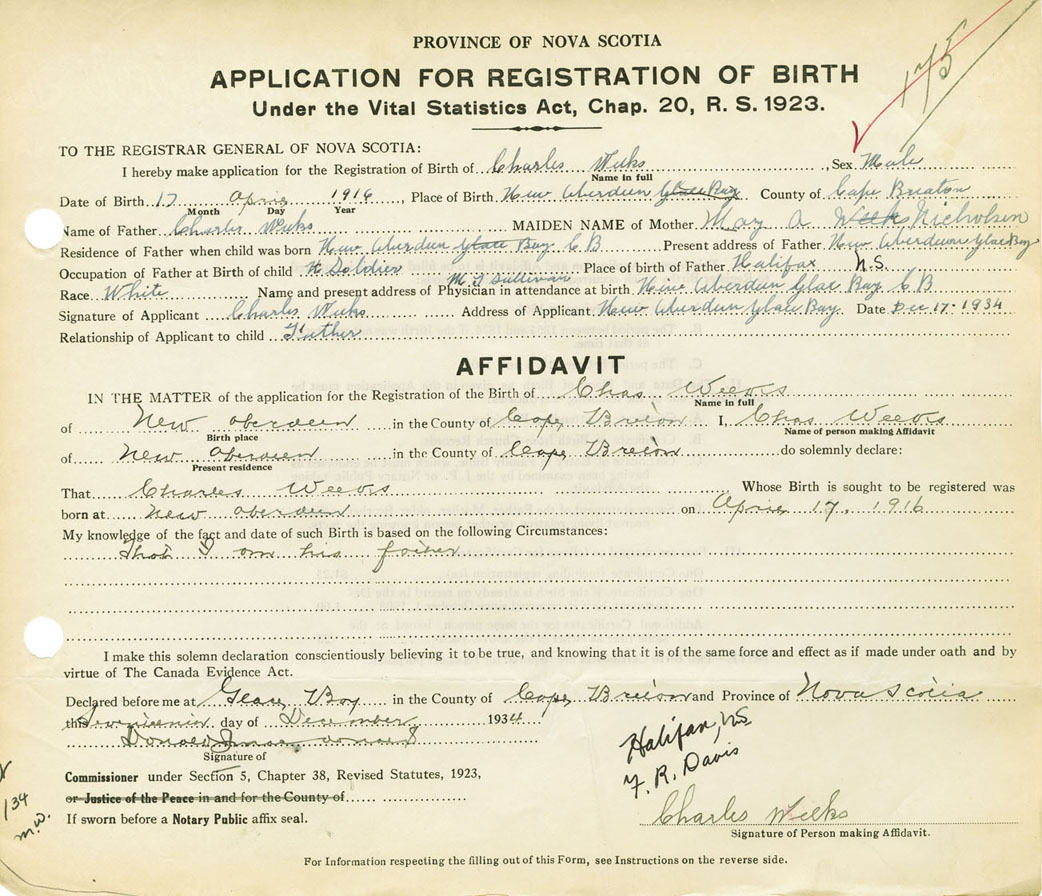 175
PROVINCE OF NOVA SCOTIA
APPLICATION FOR REGISTRATION OF BIRTH
Under the Vital Statistics Act, Chap. 20, R. S. 1923.
TO THE REGISTRAR GENERAL OF NOVA SCOTIA:
I hereby make application for the Registration of Birth of Charles Weeks, Sex Male
Name in full
Date of Birth 17 April 1916, Place of Birth New Aberdeen Glace Bay County of Cape Breaton
Month Day Year
Name of Father Charles Weeks MAIDEN NAME of Mother May A Weeks Nicholson
Residence of Father when child was born New Aberdeen Glace Bay C B Present address of Father New Aberdeen Glace Bay
Occupation of Father at Birth of child Soldier Place of birth of Father Halifax N.S.
Race White Name and present address of Physician in attendance at birth M. T Sullivan New Aberdeen Glae Bay C B
Signature of Applicant Charles Weeks Address of Applicant New Aberdeen Glace Bay. Date Dec 17 · 1934
Relationship of Applicant to child Father
AFFIDAVIT
IN THE MATTER of the application for the Registration of the Birth of Chas Weeks
Name in full
of New Aberdeen in the County of Cape Breton I, Chas Weeks
Birth place Name of person making Affidavit
of New Aberdeen in the County of Cape Breton do solemnly declare:
Present residence
That Charles Weeks Whose Birth is sought to be registered was
born at New Aberdeen on April 17, 1916
My knowledge of the fact and date of such Birth is based on the following Circumstances:
That I am his father
I make this solemn declaration conscientiously believing it to be true, and knowing that it is of the same force and effect as if made under oath and by
virtue of The Canada Evidence Act.
Declared before me at Glace Bay in the County of Cape Breton and Province of Nova Scotia
this Seventeenth day of December 1934
Donald
Signature of
Halifax, NS
F. R. Davis
Commissioner under Section 5, Chapter 38, Revised Statutes, 1923,
or Justice of the Peace in and for the County of
134
m.w.
If sworn before a Notary Public affix seal.
Charles Weeks
Signature of Person making Affidavit.
For Information respecting the filling out of this Form, see Instructions on the reverse side.